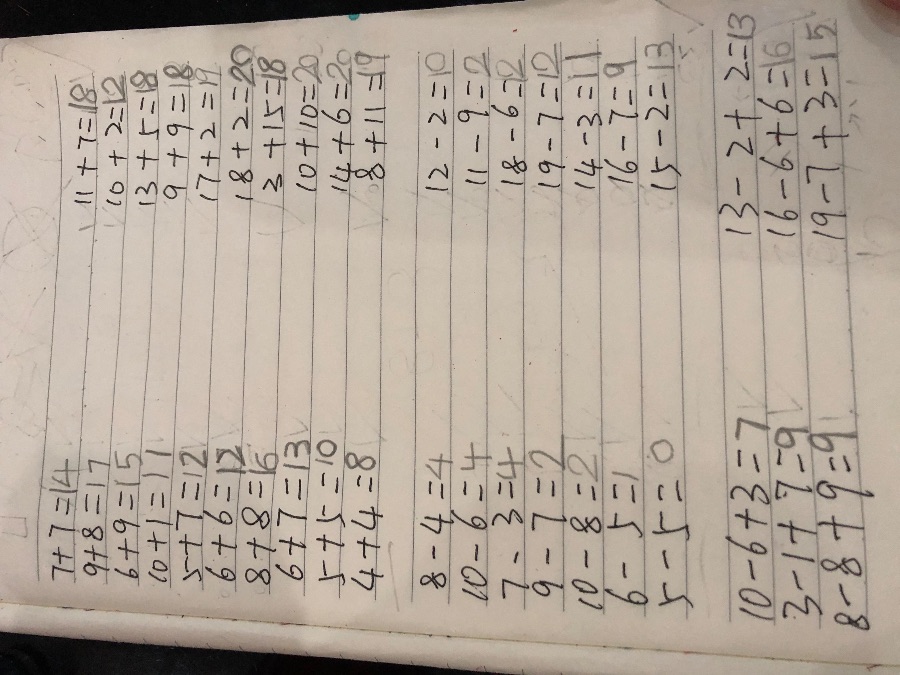 7+7=14 11+7=18
9+8=17 10+2=12
6+9=15 13+5=18
10+1=11 9+9=18
5+7=12 17+2=19
6+6=12 18+2=20
8+8=16 3+15=18
6+7=13 10+10=20
5+5=10 14+6=20
4+4=8 8+11=19
8-4=4 12-2=10
10-6=4 11-9=2
7-3=4 18-6=12
9-7=2 19-7=12
10-8=2 14-3=11
6-5=1 16-7=9
5-5=0 15-2=13
10-6+3=7 13-2+2=13
3-1+7=9 16-6+6=16
8-8+9=9 19-7+3=15